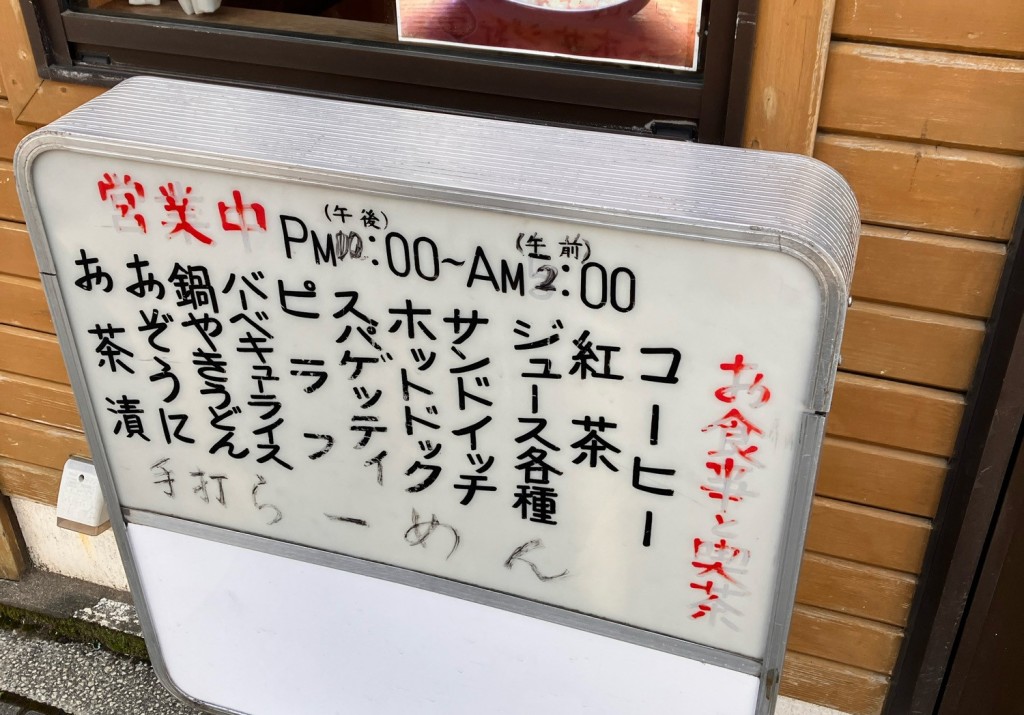 営業中
(午後) (午前)
PM :00~AM2:00
お食事と喫茶
コーヒー
紅茶
ジュース各種
サンドイッチ
ホットドック
スパゲッティ
ピラフ
バーベキューライス
鍋やきうどん
あぞうに
あ茶漬
手打らーめん